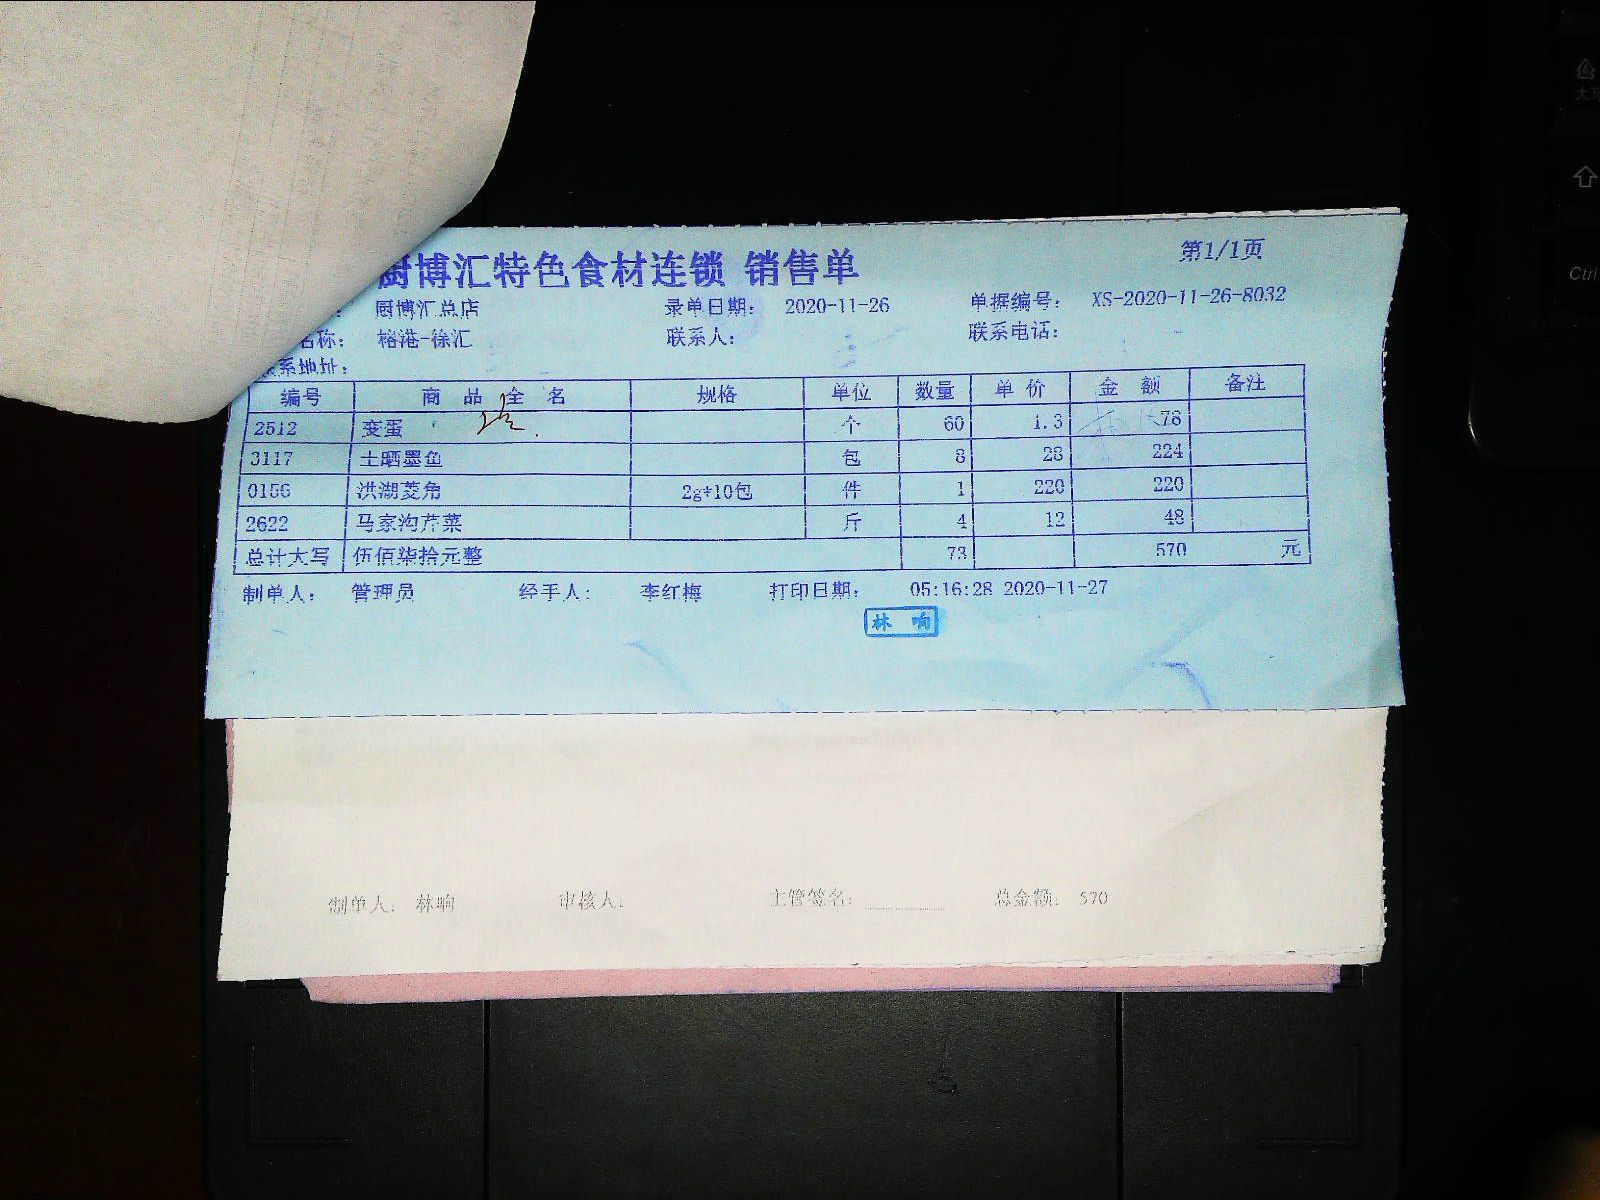 厨博汇特色食材连锁 销售单 第1/1页
厨博汇总店 录单日期： 2020-11-26 单据编号： XS-2020-11-26-8032
名称： 榕港-徐汇 联系人： 联系电话：
联系地址：
编号 商品全名 规格 单位 数量 单价 金额 备注
2512 变蛋 个 60 1.3 78
3117 土晒墨鱼 包 8 28 224
0156 洪湖菱角 2g*10包 件 1 220 220
2622 马家沟芹菜 斤 4 12 48
总计大写 伍佰柒拾元整 73 570 元
制单人： 管理员 经手人： 李红梅 打印日期： 05:16:28 2020-11-27
林 响
制单人： 林响 审核人： 主管签名： 总金额： 570
Ctrl